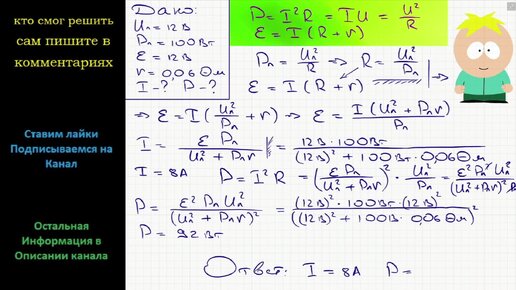 кто смог решить
сам пишите в
комментариях
Ставим лайки
Подписываемся на
Канал
Остальная
Информация в
Описании канала
Дано:
Uл = 12 В
Pл = 100 Вт
ε = 12 В
r = 0,06 Ом
I - ? P - ?
P = I²R = IU = U²/R
ε = I(R + r)
Pл = Uл²/R → R = Uл²/Pл
ε = I(R + r)
⇒ ε = I(Uл²/Pл + r) ⇒ ε = I(Uл² + Pлr)/Pл
I = εPл/(Uл² + Pлr) = 12В·100Вт/((12В)² + 100Вт·0,06Ом)
I = 8А P = I²R = (εPл/(Uл² + Pлr))²·Uл²/Pл = ε²Pл²Uл²/(Uл² + Pлr)²Pл
P = ε²PлUл²/(Uл² + Pлr)² = (12В)²·100Вт·(12В)²/((12В)² + 100В·0,06Ом)²
P = 92 Вт
Ответ: I = 8А P =